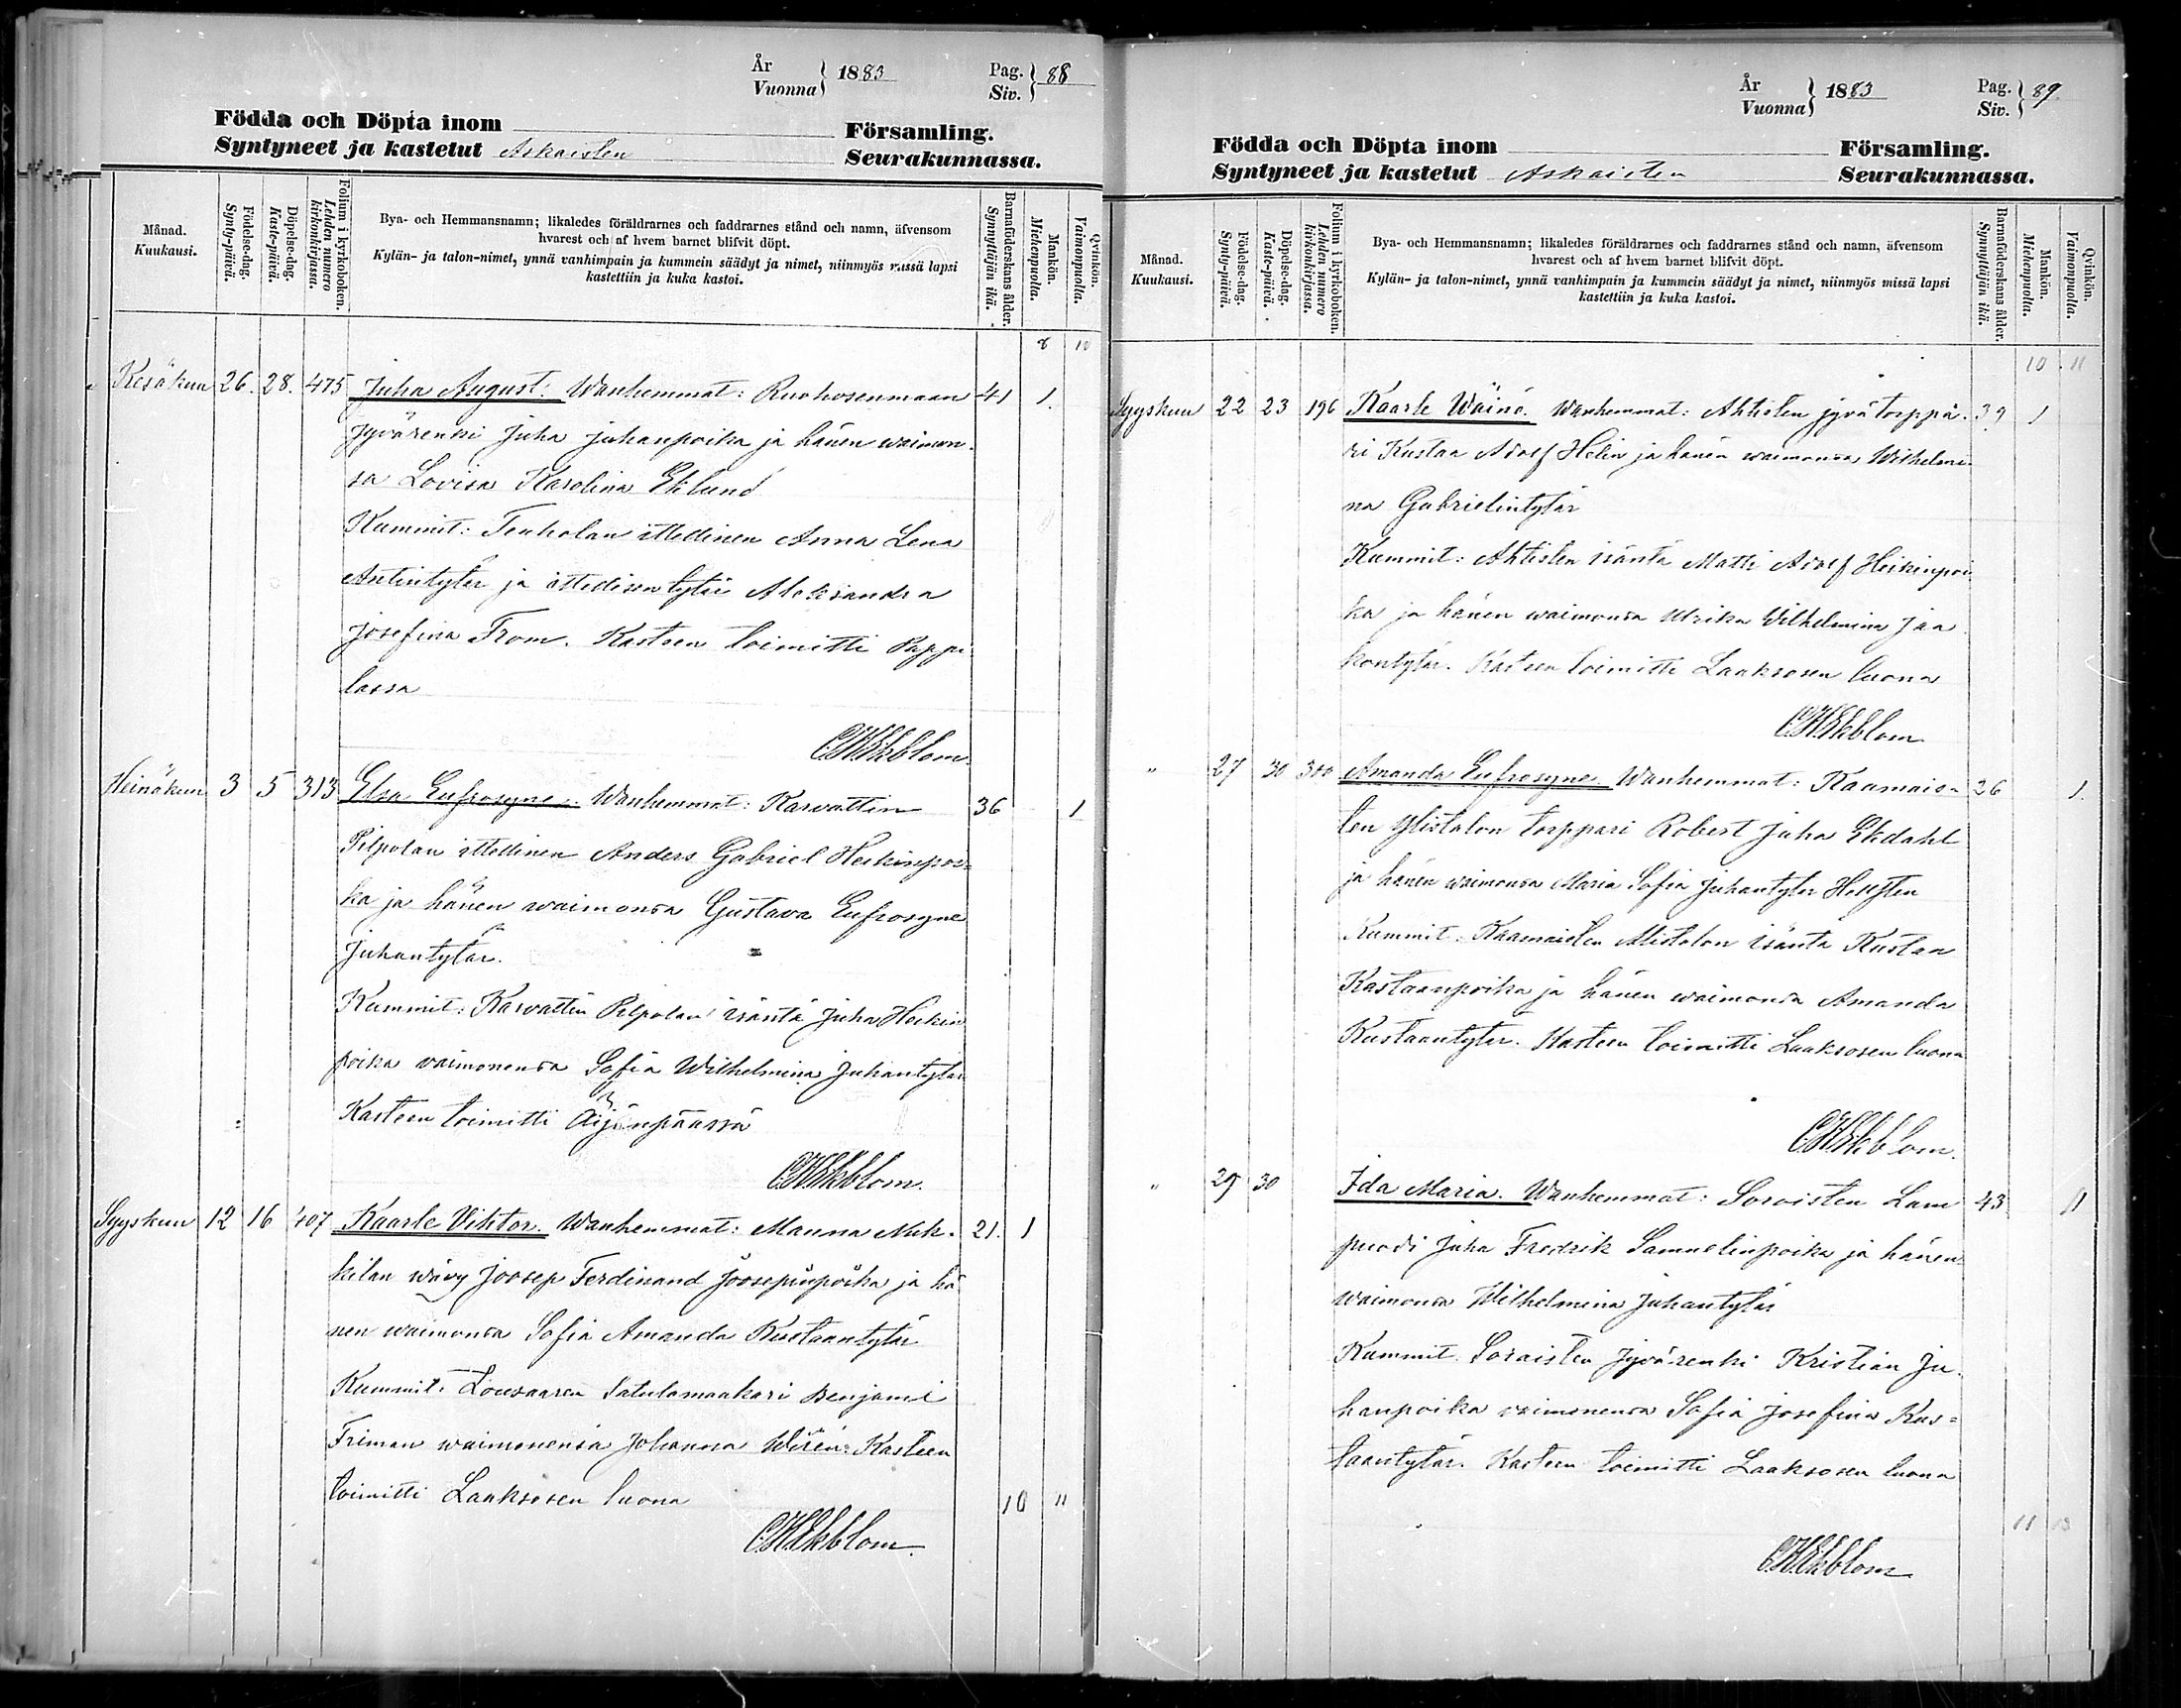 År
Vuonna } 1883
Pag.
Siv. } 88
Födda och Döpta inom Församling.
Syntyneet ja kastetut Askaisten Seurakunnassa.
Månad.
Kuukausi.
Födelse-dag.
Synty-päivä.
Döpelse-dag.
Kaste-päivä.
Folium i kyrkoboken.
Lehden numero
kirkonkirjassa.
Bya- och Hemmansnamn; likaledes föräldrarnes och faddrarnes stånd och namn, äfvensom
hvarest och af hvem barnet blifvit döpt.
Kylän- ja talon-nimet, ynnä vanhimpain ja kummein säädyt ja nimet, niinmyös missä lapsi
kastettiin ja kuka kastoi.
Barnaföderskans ålder.
Synnyttäjän ikä.
Mankön.
Miehenpuolia.
Qvinkön.
Vaimonpuolia.
8 10
Kesäkuu 26. 28. 475 Juha August. Wanhemmat: Ruohosenmaan 41 1.
Jyvärenki Juha Juhanpoika ja hänen waimon-
sa Lovisa Karolina Eklund
Kummit: Tenholan ittellinen Anna Lena
Antintytär ja ittellisen tytär Aleksandra
Josefina From. Kasteen toimitti Pappi
lassa
C.H.Ekblom.
Heinäkuu 3 5 313 Elsa Eufrosyne. Wanhemmat: Karvattin 36 1
Pilpolan ittellinen Anders Gabriel Heikinpoi-
ka ja hänen waimonsa Gustava Eufrosyne
Juhantytär.
Kummit: Karvattin Pilpolan isäntä Juha Heikin
poika vaimonensa Sofia Wilhelmina Juhantytär
Kasteen toimitti Äijänpäässä
C.H.Ekblom.
Syyskuu 12 16 407 Kaarle Viktor. Wanhemmat: Manna Nuk- 21. 1
kilan wävy Joosep Ferdinand Joosepinpoika ja hä
nen waimonsa Sofia Amanda Kustaantytär
Kummit: Lousaaren Satulamaakari Benjami
Friman waimonensa Johanna Wirén. Kasteen
toimitti Laaksosen luona
10 11
C.H.Ekblom.
År
Vuonna } 1883
Pag.
Siv. } 89.
Födda och Döpta inom Församling.
Syntyneet ja kastetut Askaisten Seurakunnassa.
Månad.
Kuukausi.
Födelse-dag.
Synty-päivä.
Döpelse-dag.
Kaste-päivä.
Folium i kyrkoboken.
Lehden numero
kirkonkirjassa.
Bya- och Hemmansnamn; likaledes föräldrarnes och faddrarnes stånd och namn, äfvensom
hvarest och af hvem barnet blifvit döpt.
Kylän- ja talon-nimet, ynnä vanhimpain ja kummein säädyt ja nimet, niinmyös missä lapsi
kastettiin ja kuka kastoi.
Barnaföderskans ålder.
Synnyttäjän ikä.
Mankön.
Miehenpuolia.
Qvinkön.
Vaimonpuolia.
10 11
Syyskuu 22 23 196 Kaarle Wäinö. Wanhemmat: Ahtisten jyvätorppa- 39 1
ri Kustaa Adolf Helin ja hänen waimonsa Wilhelmi-
na Gabrielintytär
Kummit: Ahtisten isäntä Matti Adolf Heikinpoi
ka ja hänen waimonsa Ulrika Wilhelmina Jaa
kontytär. Kasteen toimitti Laaksosen luona
C.H.Ekblom
" 27 30 300 Amanda Eufrosyne. Wanhemmat: Kaamais- 26 1.
ten Ylistalon torppari Robert Juha Ekdahl
ja hänen waimonsa Maria Sofia Juhantytär Hellsten
Kummit: Kaamaisten Alistalon isäntä Kustaa
Kustaanpoika ja hänen waimonsa Amanda
Kustaantytär. Kasteen toimitti Laaksosen luona
C.H.Ekblom.
" 29 30 Ida Maria. Wanhemmat: Soraisten Lam 43 1
puodi Juha Fredrik Samuelinpoika ja hänen
waimonsa Wilhelmina Juhantytär
Kummit. Soraisten Jyvärenki Kristian Ju-
hanpoika vaimonensa Sofia Josefina Kus-
taantytär. Kasteen toimitti Laaksosen luona
11 13
C.H.Ekblom